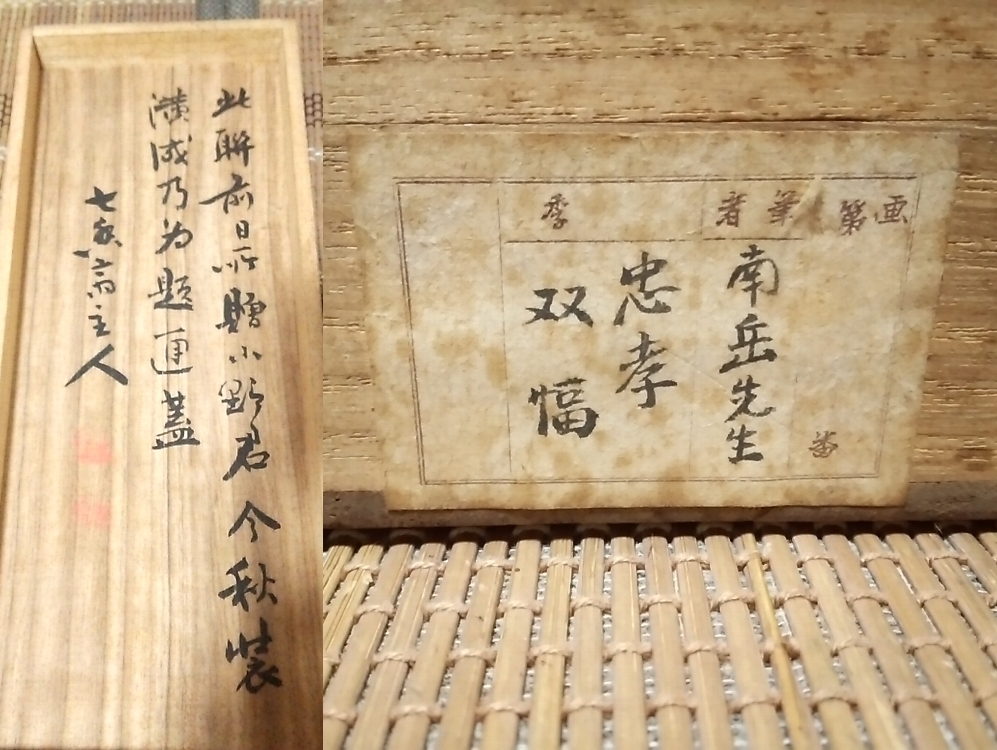 此聯前日所贈小野君今秋装
潢成乃為題匣蓋
七香斎主人
画第
番
筆者
南岳先生
季
忠孝
双幅